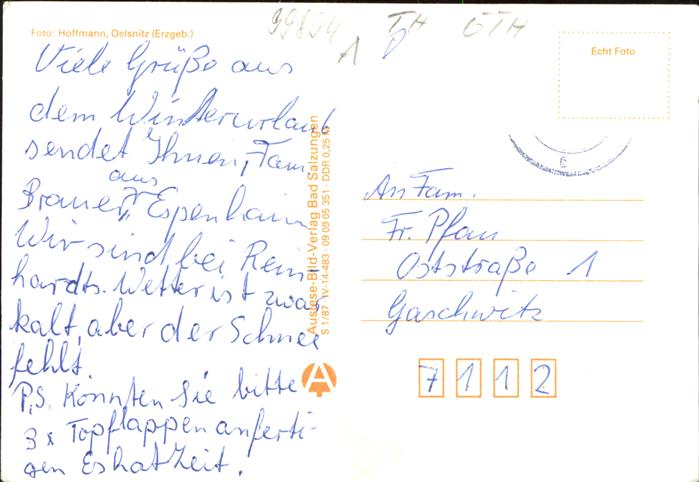 Foto: Hoffmann, Oelsnitz (Erzgeb.)
99894 TH GTH
Echt Foto
Viele Grüße aus
dem Winterurlaub
sendet Ihnen, Fam.
Brauer, aus Espenhain
Wir sind bei Rein
hardts. Wetter ist zwar
kalt, aber der Schnee
fehlt.
P.S. Könnten Sie bitte
3 x Topflappen anferti-
gen Es hat Zeit.
Auslese-Bild-Verlag Bad Salzungen
S 1/87 IV-14-483 · 09 09 05 351 · DDR 0,25 M
A
An Fam.
Fr. Pfau
Oststraße 1
Gaschwitz
7112